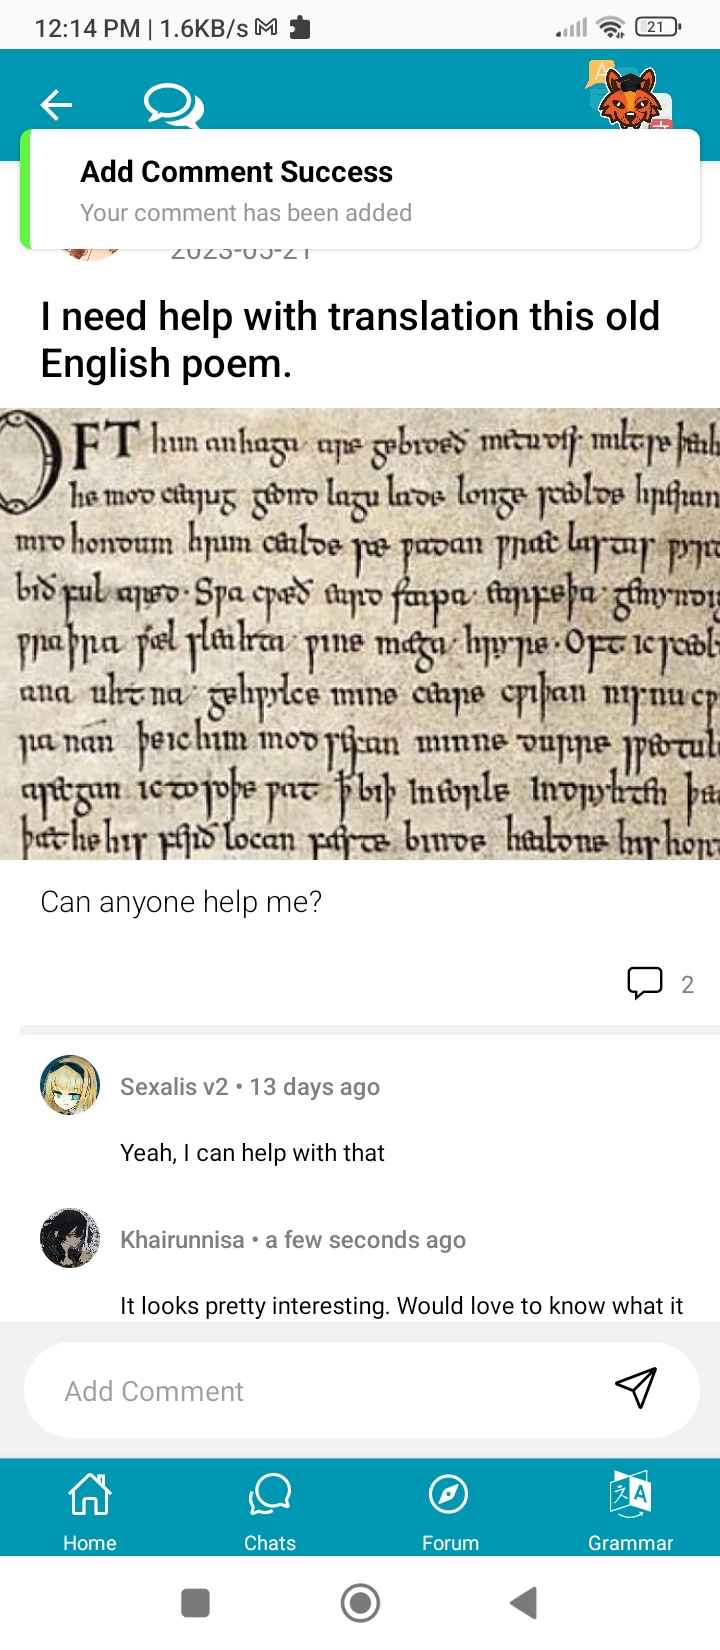 12:14 PM | 1.6KB/s
21
Add Comment Success
Your comment has been added
2023-05-21
I need help with translation this old
English poem.
OFT him anhaga are gebideð metudes miltse þeah
he mod cearig geond lagu lade longe sceolde hreran
mid hondum hrim cealde sæ ƿadan ƿræc lastas
bið ful aræd. Sƿa cƿæð eard stapa earfeþa
ƿraþra ƿæl sleahta ƿine mæga hryre. Oft ic
ana uhtna gehƿylce mine ceare cƿiþan nis nu
nan þe ic him mod sefan minne durre
asecgan ic to soþe ƿat þ biþ in eorle indryhten
þæt he his ferð locan fæste binde healdne his
Can anyone help me?
2
Sexalis v2 • 13 days ago
Yeah, I can help with that
Khairunnisa • a few seconds ago
It looks pretty interesting. Would love to know what it
Add Comment
Home Chats Forum Grammar